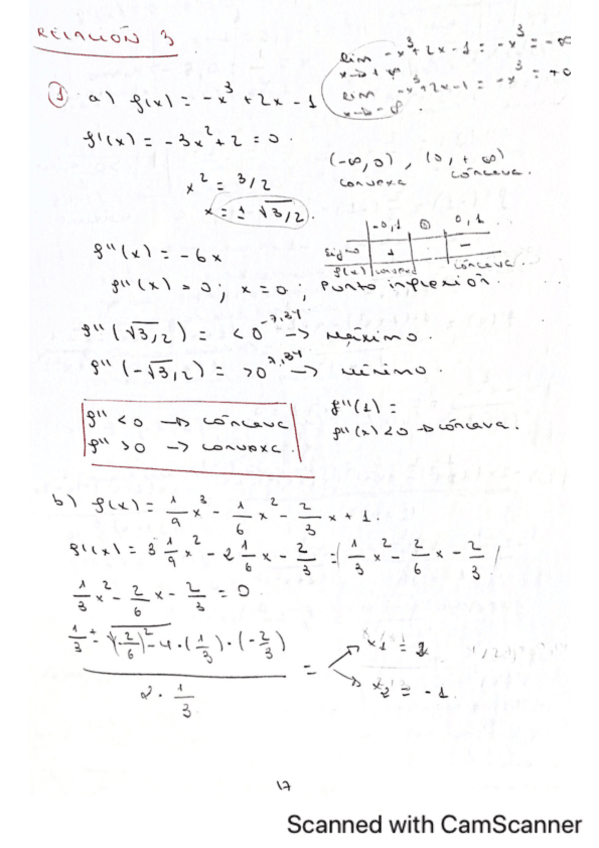 RELACIÓN 3
① a) f(x) = -x³ + 2x - 1
lim -x³+2x-1 = -x³ = -∞
x→+∞
lim -x³+2x-1 = -x³ = +∞
x→-∞
f'(x) = -3x² + 2 = 0.
x² = 3/2
x = ± √3/2.
(-∞,0) , (0,+∞)
convexa cóncava.
-0,1 0 0,1
signo + · -
f(x) convexa cóncava.
f''(x) = -6x
f''(x) = 0; x = 0; Punto inflexión.
f''(√3/2) = <0 -7,34 → Máximo.
f''(-√3/2) = >0 7,34 → Mínimo.
f'' < 0 → cóncava
f'' > 0 → convexa.
f''(1) =
f''(x) < 0 → cóncava.
b) f(x) = 1/9 x³ - 1/6 x² - 2/3 x + 1.
f'(x) = 3 1/9 x² - 2 1/6 x - 2/3 = 1/3 x² - 2/6 x - 2/3
1/3 x² - 2/6 x - 2/3 = 0
1/3 ± √(-2/6)² - 4·(1/3)·(-2/3)
2 · 1/3
= x₁ = 2
x₂ = -1.
17
Scanned with CamScanner